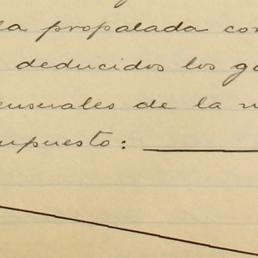 la propalada con
deducidos los ga
ensuales de la m
upuesto: